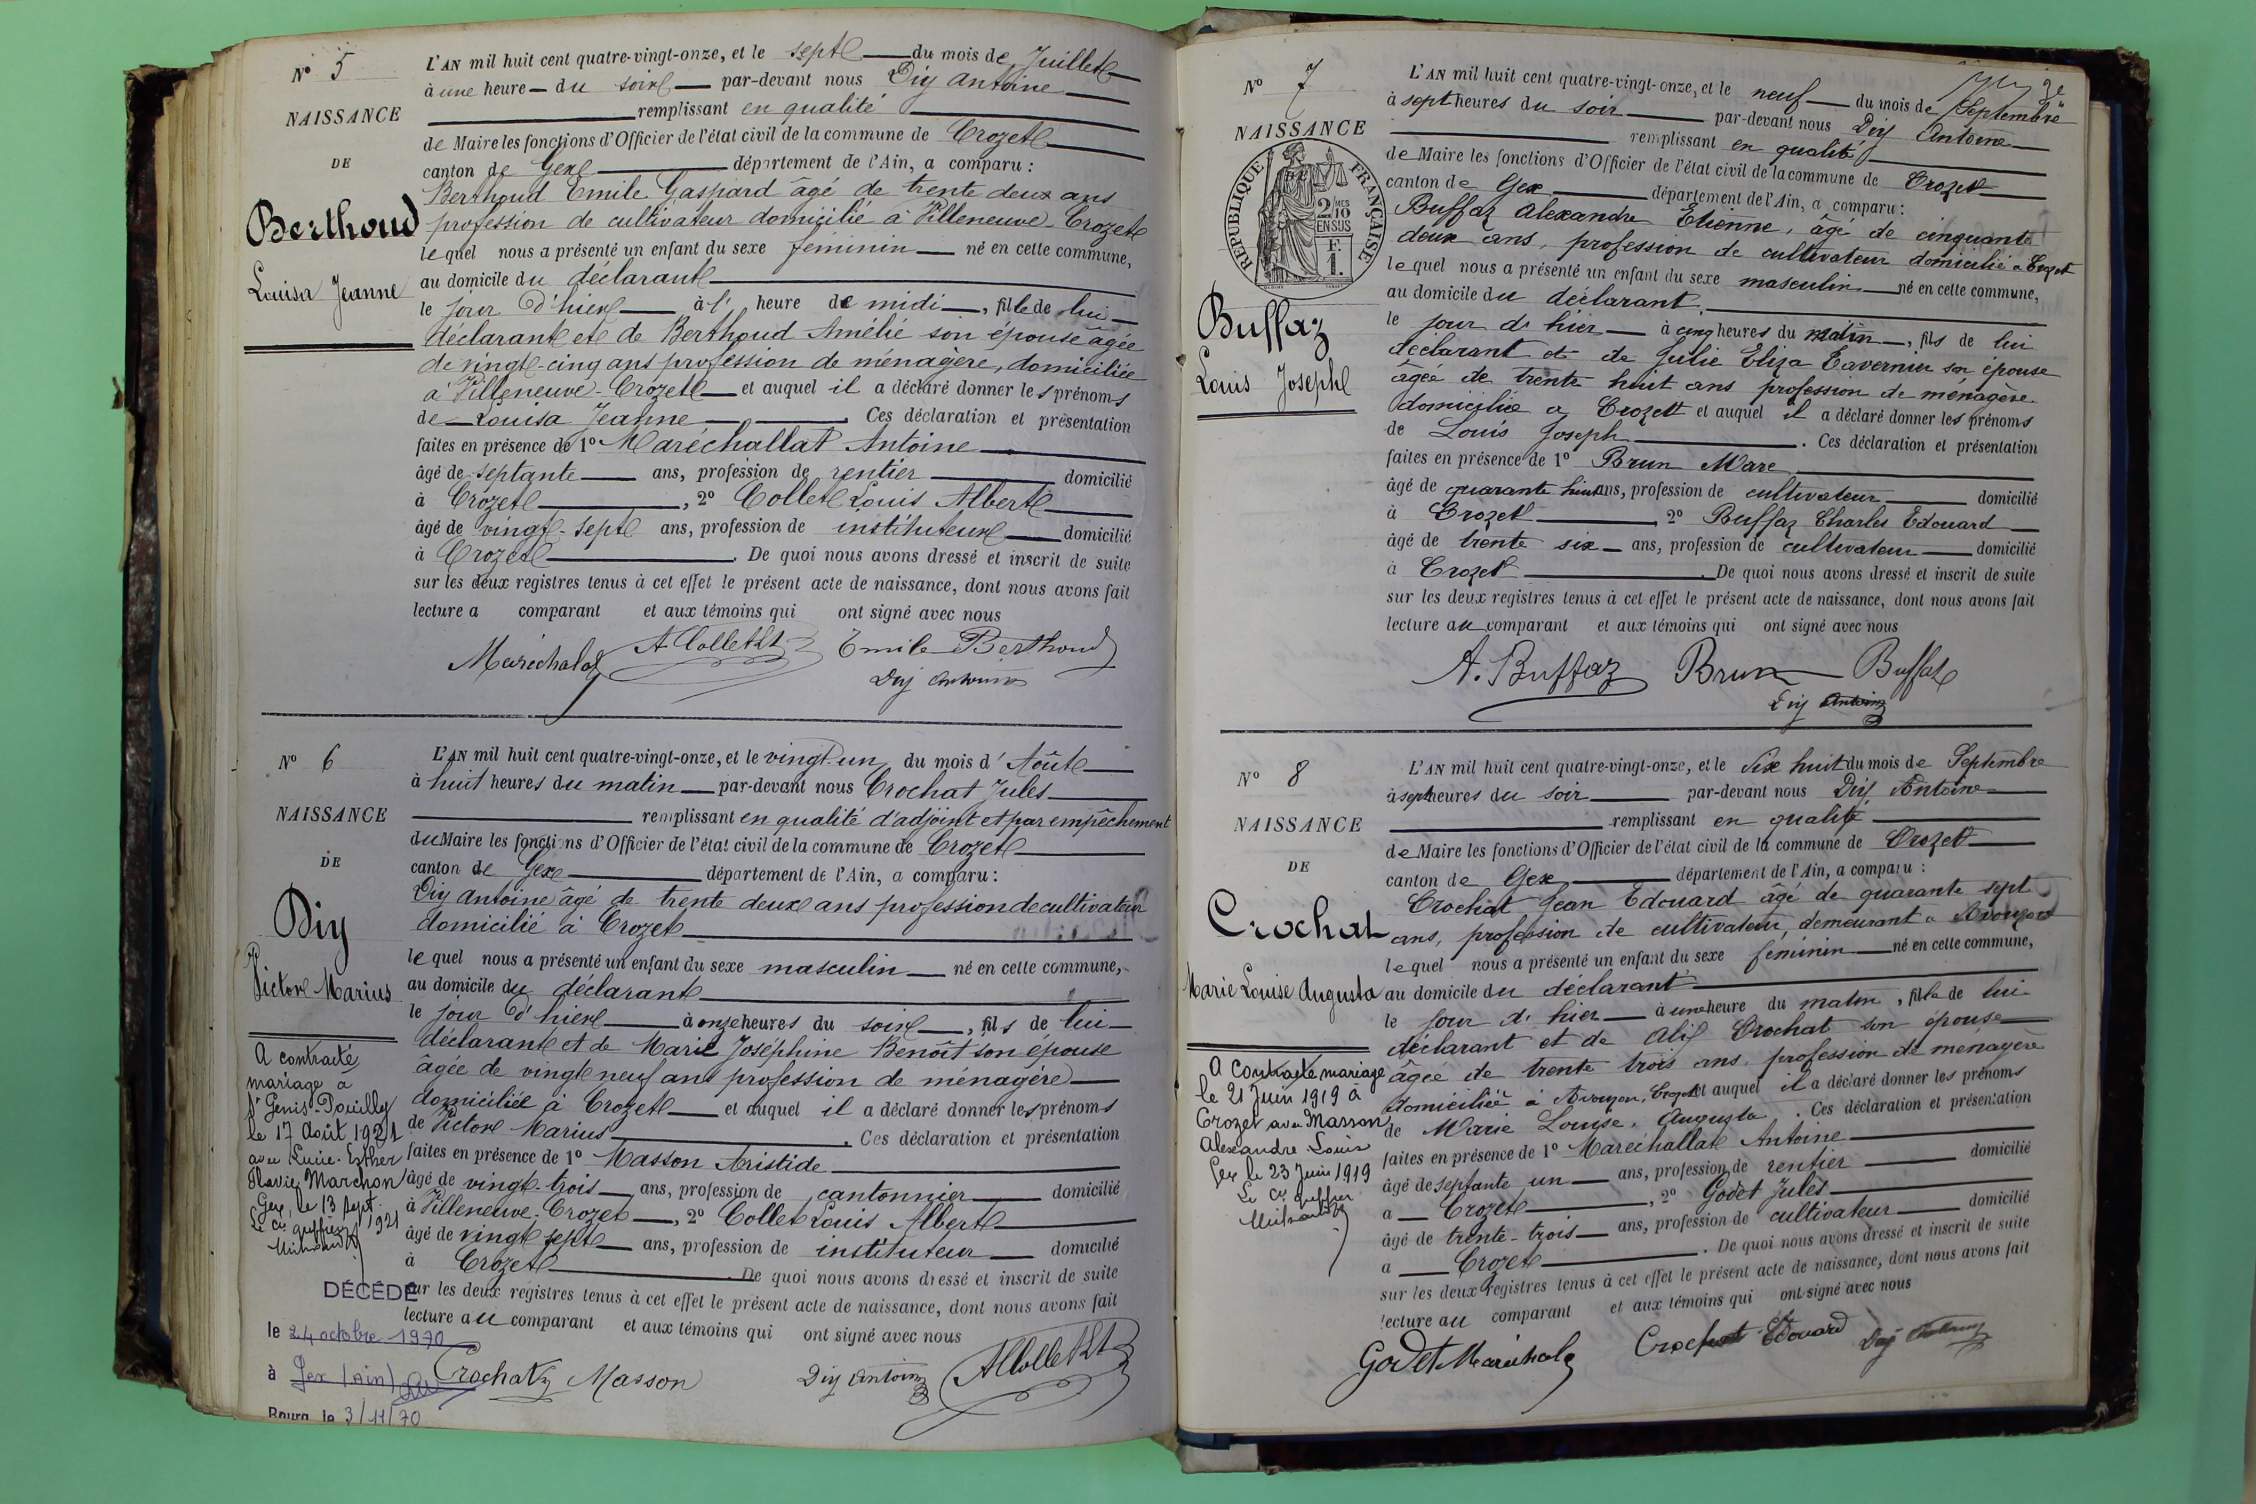 N° 5
NAISSANCE
DE
Berthoud
Louisa Jeanne
L'AN mil huit cent quatre-vingt-onze, et le sept du mois de Juillet
à une heure du soir par-devant nous Diy Antoine
remplissant en qualité
de Maire les fonctions d'Officier de l'état civil de la commune de Crozet
canton de Gex département de l'Ain, a comparu :
Berthoud Emile Gaspard âgé de trente deux ans
profession de cultivateur domicilié à Villeneuve-Crozet
lequel nous a présenté un enfant du sexe féminin né en cette commune,
au domicile du déclarant
le jour d'hier à l' heure de midi, fille de lui
déclarant et de Berthoud Amélie son épouse âgée
de vingt-cinq ans profession de ménagère, domiciliée
à Villeneuve-Crozet et auquel il a déclaré donner les prénoms
de Louisa Jeanne. Ces déclaration et présentation
faites en présence de 1° Maréchallat Antoine
âgé de septante ans, profession de rentier domicilié
à Crozet, 2° Collet Louis Albert
âgé de vingt-sept ans, profession de instituteur domicilié
à Crozet. De quoi nous avons dressé et inscrit de suite
sur les deux registres tenus à cet effet le présent acte de naissance, dont nous avons fait
lecture a comparant et aux témoins qui ont signé avec nous
Maréchalat A Collet Lt Emile Berthoud
Diy Antoine
N° 6
NAISSANCE
DE
Diy
Victor Marius
A contracté
mariage à
St Genis-Pouilly
le 17 Août 1921
avec Lucie-Esther
Flavie Marchon
Gex, le 13 Sept.
1921
Le Cis greffier
DÉCÉDÉ
le 24 octobre 1970
à Gex (Ain)
Bourg, le 3/11/70
L'AN mil huit cent quatre-vingt-onze, et le vingt un du mois d'Août
à huit heures du matin par-devant nous Crochat Jules
remplissant en qualité d'adjoint et par empêchement
du Maire les fonctions d'Officier de l'état civil de la commune de Crozet
canton de Gex département de l'Ain, a comparu :
Diy Antoine âgé de trente deux ans profession de cultivateur
domicilié à Crozet
lequel nous a présenté un enfant du sexe masculin né en cette commune,
au domicile du déclarant
le jour d'hier à onze heures du soir, fils de lui
déclarant et de Marie Joséphine Benoît son épouse
âgée de vingt neuf ans profession de ménagère
domiciliée à Crozet et auquel il a déclaré donner les prénoms
de Victor Marius. Ces déclaration et présentation
faites en présence de 1° Masson Aristide
âgé de vingt-trois ans, profession de cantonnier domicilié
à Villeneuve-Crozet, 2° Collet Louis Albert
âgé de vingt sept ans, profession de instituteur domicilié
à Crozet. De quoi nous avons dressé et inscrit de suite
sur les deux registres tenus à cet effet le présent acte de naissance, dont nous avons fait
lecture au comparant et aux témoins qui ont signé avec nous
Crochat Masson Diy Antoine A Collet Lt
N° 7
NAISSANCE
RÉPUBLIQUE FRANÇAISE
2 MES
/10
EN SUS
F.
1.
Buffaz
Louis Joseph
L'AN mil huit cent quatre-vingt-onze, et le neuf du mois de Septembre
à sept heures du soir par-devant nous Diy Antoine
remplissant en qualité
de Maire les fonctions d'Officier de l'état civil de la commune de Crozet
canton de Gex département de l'Ain, a comparu :
Buffaz Alexandre Etienne, âgé de cinquante
deux ans, profession de cultivateur domicilié à Crozet
lequel nous a présenté un enfant du sexe masculin né en cette commune,
au domicile du déclarant.
le jour d'hier à cinq heures du matin, fils de lui
déclarant et de Julie Eliza Tavernier son épouse
âgée de trente huit ans profession de ménagère
domiciliée à Crozet et auquel il a déclaré donner les prénoms
de Louis Joseph. Ces déclaration et présentation
faites en présence de 1° Brun Marc
âgé de quarante huit ans, profession de cultivateur domicilié
à Crozet, 2° Buffaz Charles Edouard
âgé de trente six ans, profession de cultivateur domicilié
à Crozet. De quoi nous avons dressé et inscrit de suite
sur les deux registres tenus à cet effet le présent acte de naissance, dont nous avons fait
lecture au comparant et aux témoins qui ont signé avec nous
A. Buffaz Brun Buffaz
Diy Antoine
N° 8
NAISSANCE
DE
Crochat
Marie Louise Augusta
A contracté mariage
le 21 Juin 1919 à
Crozet avec Masson
Alexandre Louis
Gex le 23 Juin 1919
Le Cis greffier
L'AN mil huit cent quatre-vingt-onze, et le dix huit du mois de Septembre
à sept heures du soir par-devant nous Diy Antoine
remplissant en qualité
de Maire les fonctions d'Officier de l'état civil de la commune de Crozet
canton de Gex département de l'Ain, a comparu :
Crochat Jean Edouard âgé de quarante sept
ans, profession de cultivateur, demeurant à Avouzon
lequel nous a présenté un enfant du sexe féminin né en cette commune,
au domicile du déclarant
le jour d'hier à une heure du matin, fille de lui
déclarant et de Alix Crochat son épouse
âgée de trente trois ans profession de ménagère
domiciliée à Avouzon, Crozet et auquel il a déclaré donner les prénoms
de Marie Louise Augusta. Ces déclaration et présentation
faites en présence de 1° Maréchallat Antoine
âgé de septante un ans, profession de rentier domicilié
à Crozet, 2° Godet Jules
âgé de trente-trois ans, profession de cultivateur domicilié
à Crozet. De quoi nous avons dressé et inscrit de suite
sur les deux registres tenus à cet effet le présent acte de naissance, dont nous avons fait
lecture au comparant et aux témoins qui ont signé avec nous
Godet Maréchalat Crochat Edouard Diy Antoine